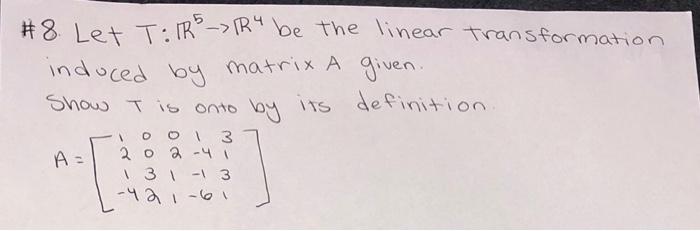 #8. Let T: ℝ⁵ -> ℝ⁴ be the linear transformation
induced by matrix A given.
Show T is onto by its definition.
A = [ 1 0 0 1 3
2 0 2 -4 1
1 3 1 -1 3
-4 2 1 -6 1 ]